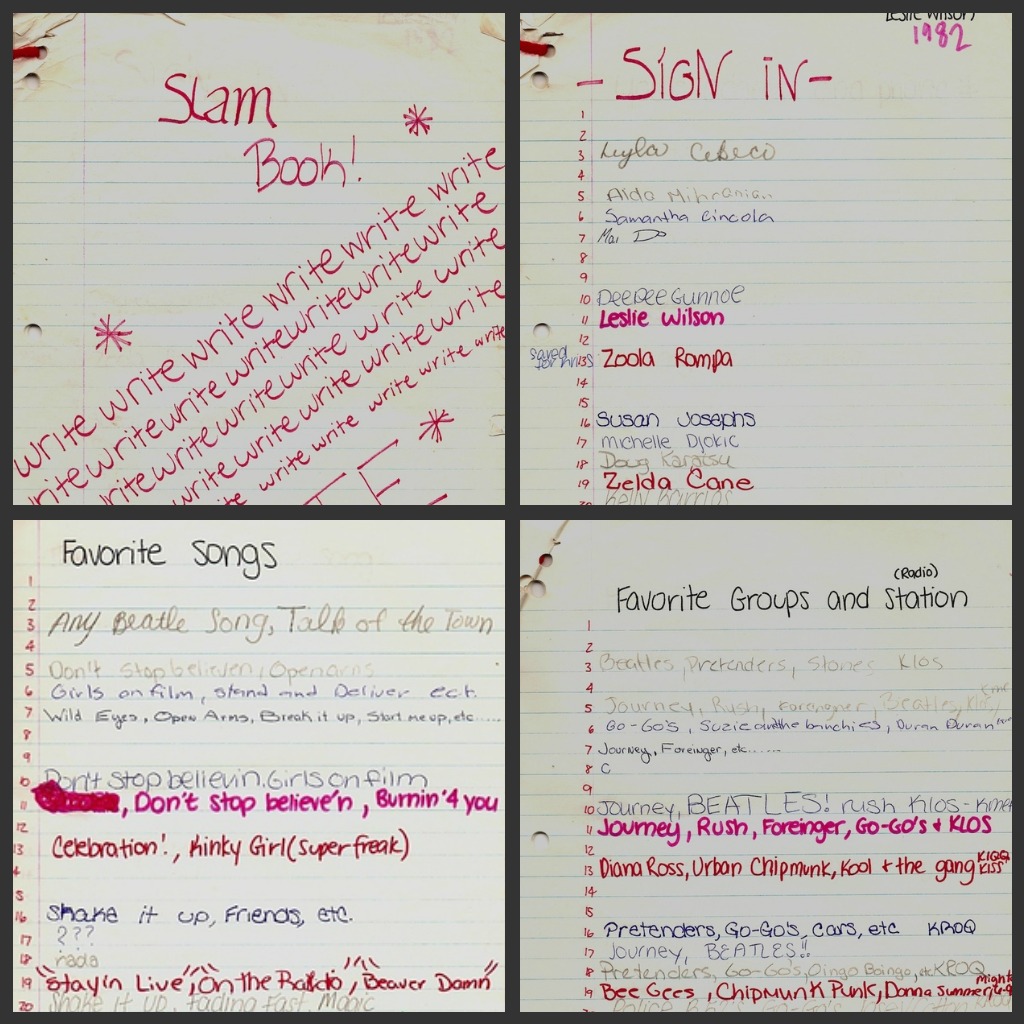 Slam
Book!
write write write write write write write
write write write write write write write
write write write write write write
write write write write write
write write write write write write
TE
Leslie Wilson
1982
- SiGN iN -
1
2
3 Leyla
4
5 Aida Mihranian
6 Samantha Lincoln
7 Mai Do
8
9
10 DeeDee Gunnoe
11 Leslie Wilson
12
saved
for kris
13 Zoola Rompa
14
15
16 Susan Josephs
17 Michelle Djokic
18 Doug Karatsu
19 Zelda Cane
20 Kelly Barrios
Favorite Songs
1
2
3 Any Beatle Song, Talk of the Town
4
5 Don't Stop believen, Open arms
6 Girls on film, stand and Deliver ect.
7 Wild Eyes, Open Arms, Break it up, Start me up, etc.....
8
9
10 Don't stop believin. Girls on film
11 , Don't stop believe'n, Burnin '4 you
12
13 Celebration!, Kinky Girl (super freak)
4
5
16 Shake it up, Friends, etc.
17 ???
18 nada
19 "Stayin Live", "On the Radio", "Beaver Damn"
20 Shake it up, fading fast, Magic
(Radio)
Favorite Groups and Station
1
2
3 Beatles, Pretenders, Stones KLOS
4
5 Journey, Rush, Foreigner, Beatles, Klos
6 Go-Go's, Suzie and the banchies, Duran Duran
7 Journey, Foreinger, etc.......
8 C
9
10 Journey, BEATLES! rush Klos-Kmet
11 Journey, Rush, Foreinger, Go-Go's + KLOS
12
13 Diana Ross, Urban Chipmunk, Kool + the gang KIQQ KISS
14
15
16 Pretenders, Go-Go's, Cars, etc KROQ
17 Journey, BEATLES!!
18 Pretenders, Go-Go's, Oingo Boingo, etc KROQ
19 Bee Gees, Chipmunk Punk, Donna Summer,